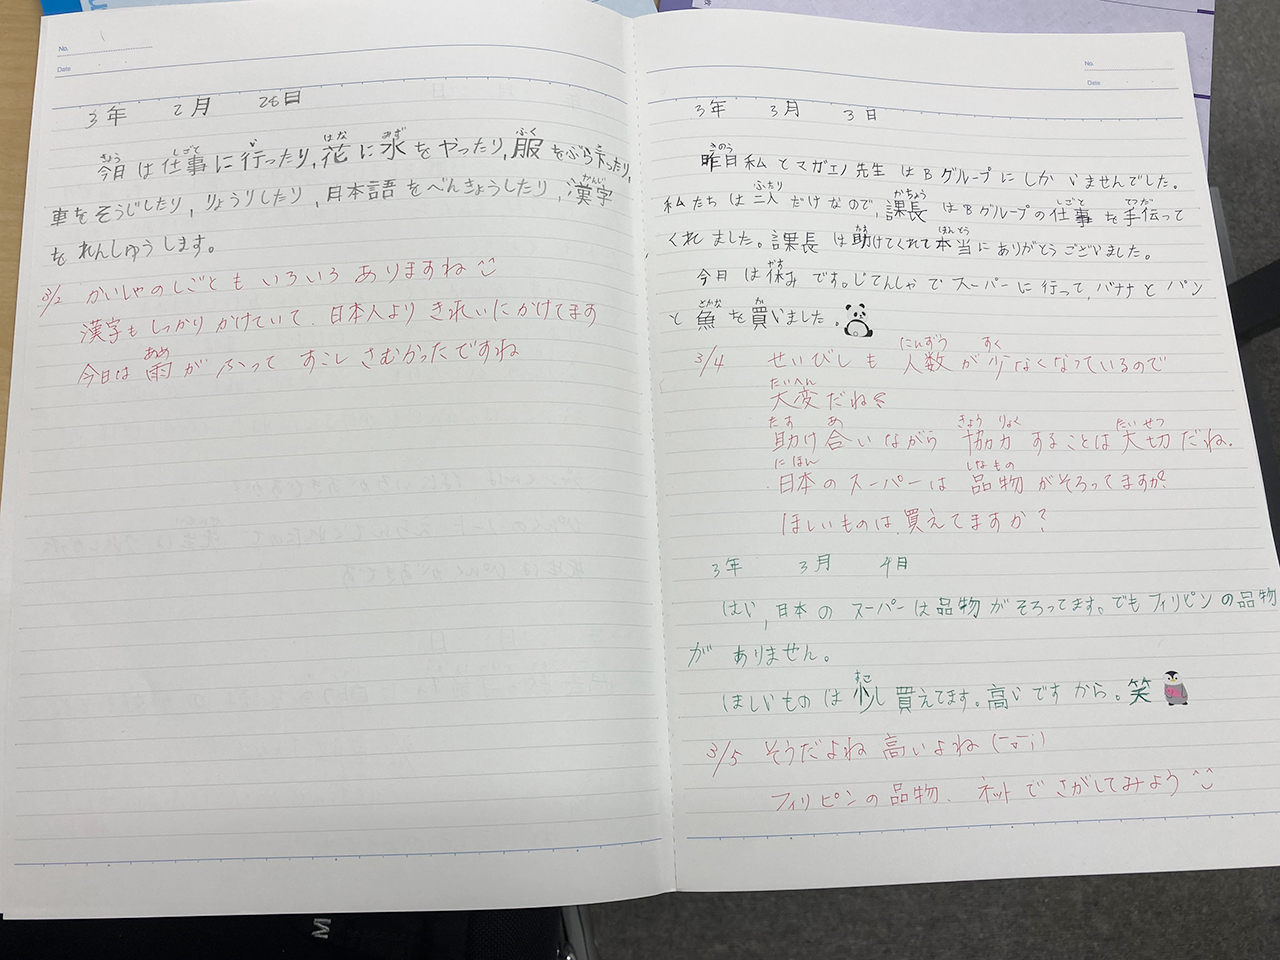 No.
Date
3年 2月 28日
今日は仕事に行ったり,花に水をやったり,服をぶら下ったり,
車をそうじしたり,りょうりしたり,日本語をべんきょうしたり,漢字
をれんしゅうします。
3/2 かいしゃのしごともいろいろありますね
漢字もしっかりかけていて、日本人よりきれいにかけてます
今日は雨がふってすこしさむかったですね
No.
Date
3年 3月 3日
昨日私とマガエノ先生はBグループにしかいませんでした。
私たちは二人だけなので,課長はBグループの仕事を手伝って
くれました。課長は助けてくれて本当にありがとうございました。
今日は休みです。じてんしゃでスーパーに行って,バナナとパン
と魚を買いました。
3/4 せいびしも人数が少なくなっているので
大変だね
助け合いながら協力することは大切だね.
日本のスーパーは品物がそろってますか?
ほしいものは買えてますか?
3年 3月 4日
はい,日本のスーパーは品物がそろってます。でもフィリピンの品物
がありません。
ほしいものは少し買えてます。高いですから。笑
3/5 そうだよね高いよね
フィリピンの品物、ネットでさがしてみよう
M